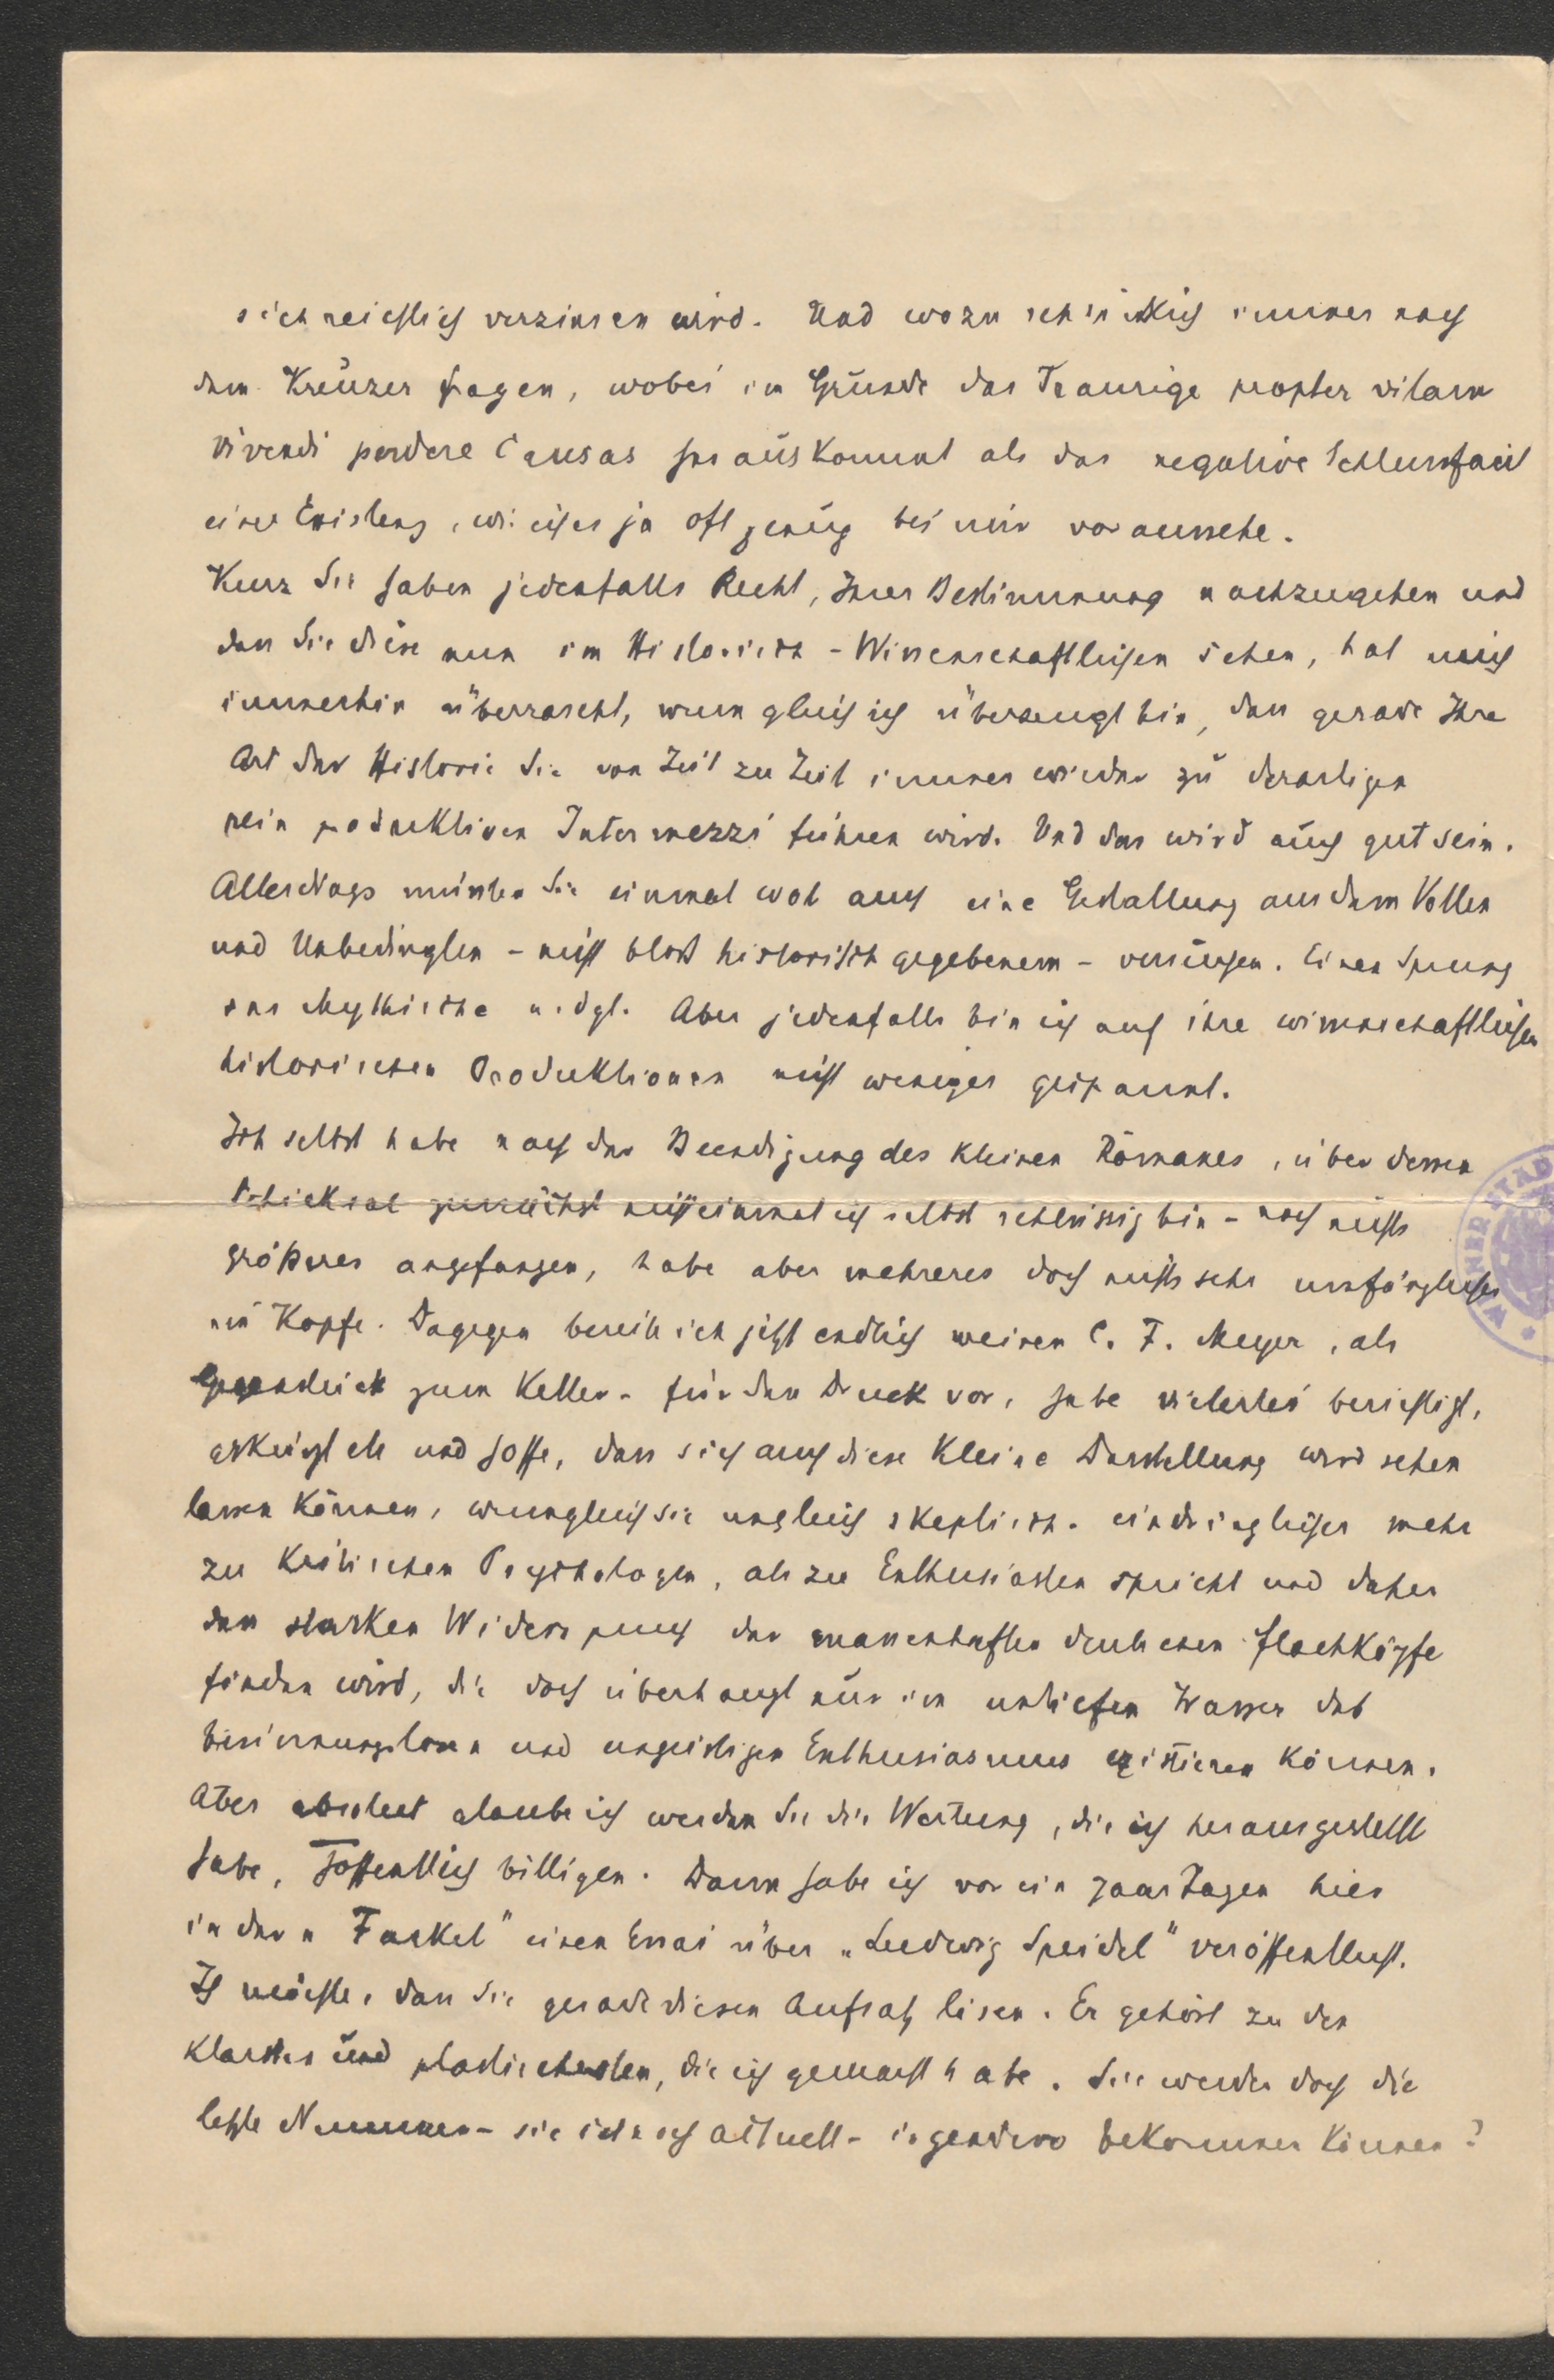 sich reichlich verzinsen wird. Und wozu schließlich immer nach
dem Kreuzer fragen, wobei im Grunde das Traurige propter vitam
vivendi perdere causas herauskommt als das negative Schlussfacit
einer Existenz, wie ich es ja oft genug bei mir voraussehe.
Kurz Sie haben jedenfalls Recht, Ihrer Bestimmung nachzugehen und
dass Sie diese nun im Historisch-Wissenschaftlichen sehen, hat mich
immerhin überrascht, wenn gleich ich überzeugt bin, dass gerade Ihre
Art der Historie Sie von Zeit zu Zeit immer wieder zu derartigen
rein produktiven Intermezzi führen wird. Und das wird auch gut sein.
Allerdings müssten Sie einmal wol auch eine Gestaltung aus dem Vollen
und Unbedingten - nicht bloss historisch gegebenem - versuchen. Einen Sprung
ins Mythische u. dgl. Aber jedenfalls bin ich auf ihre wissenschaftlichen
historischen Produktionen nicht weniger gespannt.
Ich selbst habe nach der Beendigung des kleinen Romanes, über dessen
Schicksal zunächst nicht einmal ich selbst schlüssig bin - noch nichts
größeres angefangen, habe aber mehreres doch nichts sehr umfängliches
im Kopfe. Dagegen bereite ich jetzt endlich meinen C. F. Meyer, als
Gegenstück zum Keller - für den Druck vor, habe vielerlei berichtigt,
und hoffe, dass sich auch diese kleine Darstellung wird sehen
lassen können, wenngleich sie ungleich skeptisch. eindringlicher mehr
zu kritischen Psychologen, als zu Enthusiasten spricht und daher
den starken Widerspruch der massenhaften deutschen Flachköpfe
finden wird, die doch überhaupt nur im untiefen Wasser des
besinnungslosen und ungeistigen Enthusiasmus existieren können.
Aber absolut glaube ich werden Sie die Wertung, die ich herausgestellt
habe, hoffentlich billigen. Dann habe ich vor ein paar Tagen hier
in der „Fackel" einen Essai über „Ludwig Speidel" veröffentlicht.
Ich möchte, dass Sie gerade diesen Aufsatz lesen. Er gehört zu den
klarsten und plastischesten, die ich gemacht habe. Sie werden doch die
letzte Nummer - sie ist noch aktuell - irgendwo bekommen können?